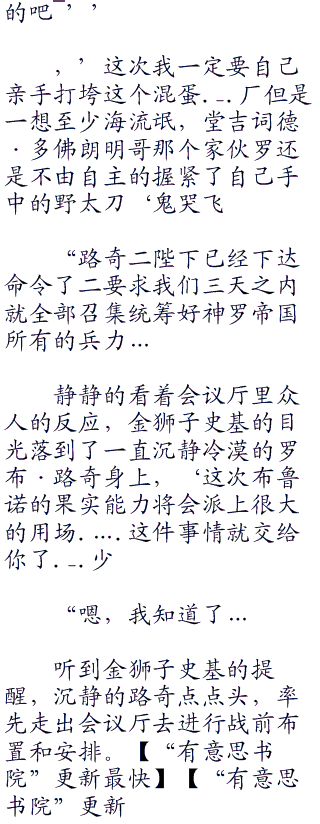 的吧”’’
，’这次我一定要自己
亲手打垮这个混蛋._.厂但是
一想至少海流氓，堂吉词德
·多佛朗明哥那个家伙罗还
是不由自主的握紧了自己手
中的野太刀‘鬼哭飞
“路奇二陛下已经下达
命令了二要求我们三天之内
就全部召集统筹好神罗帝国
所有的兵力…
静静的看着会议厅里众
人的反应，金狮子史基的目
光落到了一直沉静冷漠的罗
布·路奇身上，‘这次布鲁
诺的果实能力将会派上很大
的用场.….这件事情就交给
你了._.少
“嗯，我知道了…
听到金狮子史基的提
醒，沉静的路奇点点头，率
先走出会议厅去进行战前布
置和安排。【“有意思书
院”更新最快】【“有意思
书院”更新